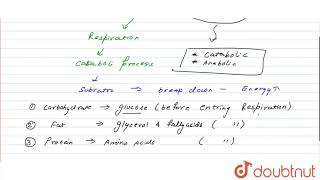 Respiration
Catabolic process
* Cattabolic
* Anabolic
Substrate → break down — Energy↑
① Carbohydrate → glucose (before entring Respiration)
② Fat → glycerol & fattyacids ( " )
③ Protein → Amino acids ( " )
doubtnut